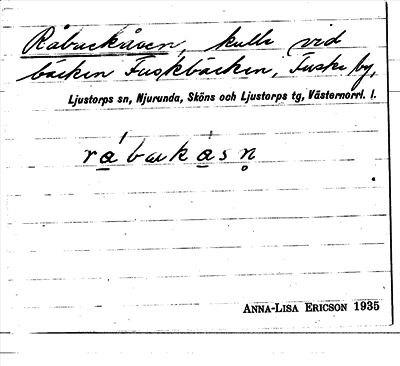 Råbuckåsen, kulle vid
bäcken Fuskbäcken, Fuske by,
Ljustorps sn, Njurunda, Sköns och Ljustorps tg, Västernorrl. l.
råbukåsn̥
ANNA-LISA ERICSON 1935